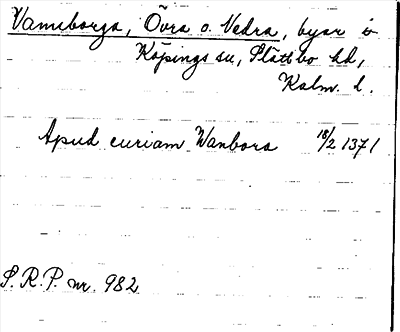 Vanneborga, Övra o. Nedra, byar i
Köpings sn, Slättbo hd,
Kalm. l.
Apud curiam Wanbora 18/2 1371
S.R.P. nr. 982